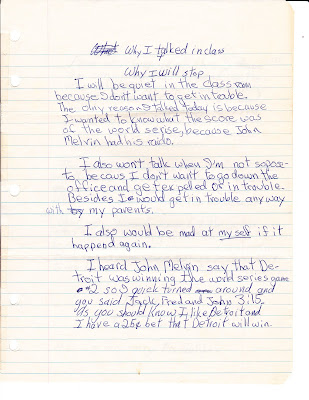 Why I talked in class
Why I will stop
I will be quiet in the class room
because I don't want to get in trouble.
The olny reason I talked today is because
I wanted to know what the score was
of the world serise, because John
Melvin had his raido.
I also won't talk when I'm not sopose
to, becaus I don't want to go down the
office and get expelled or in trouble.
Besides I would get in trouble anyway
with my parents.
I also would be mad at my self if it
happend again.
I heard John Melvin say that De-
troit was winning the word series game
2 so I quick turned around and
you said Jack, Fred and John 3:15.
As you should know I like Detroit and
I have a 25¢ bet that Detroit will win.